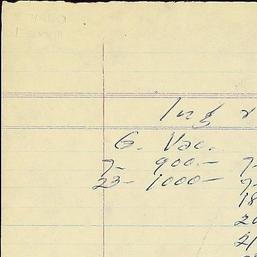 Ing
G. Vac.
7- 900.— 7-
23- 1000— 7-
18
20
21